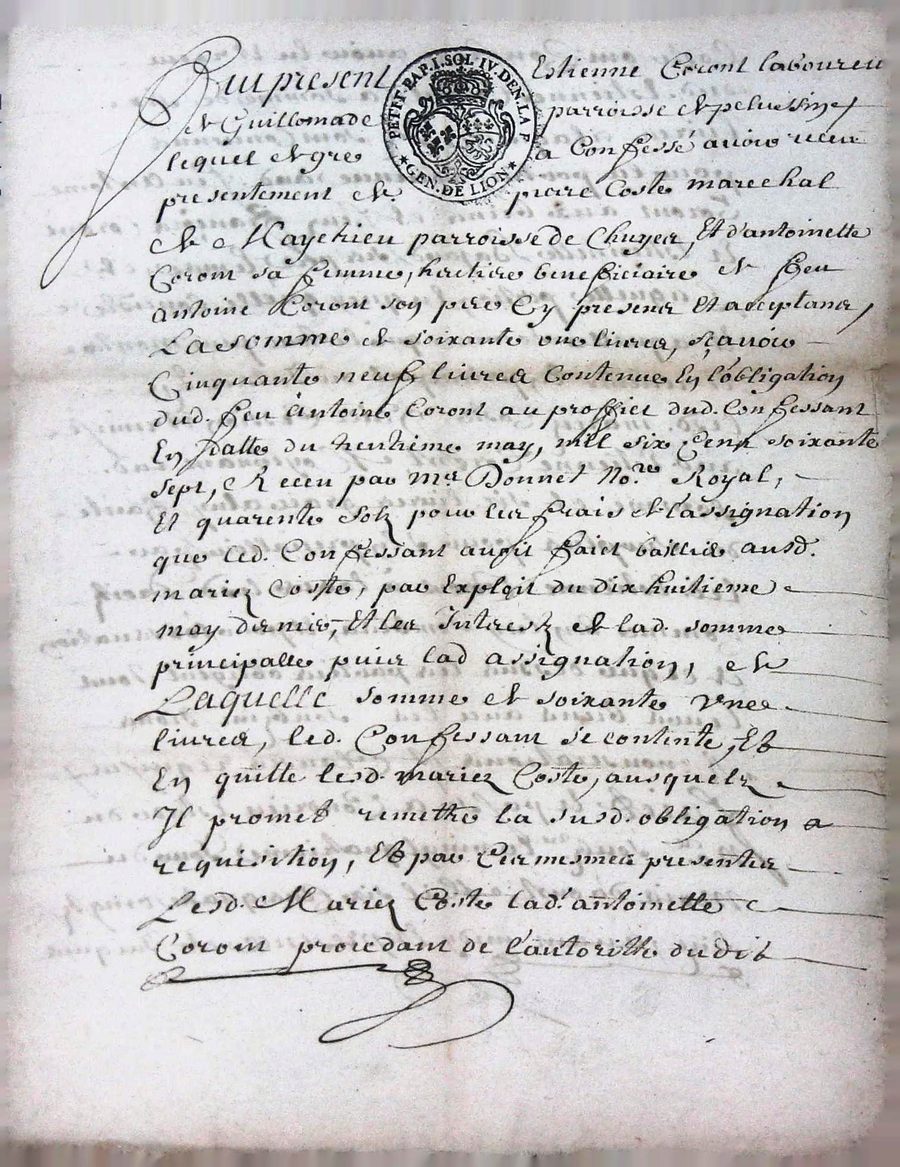 Fut present Estienne Coront laboureur
de Guillomade parroisse de pelussin,
lequel de gre a Confessé avoir receu
presentement de pierre Coste marechal
de Mayerieu parroisse de Chuyes, Et d'antoinette
Coront sa femme, heritiere beneficiaire de feu
Antoine Coront son pere Cy present Et acceptans,
La somme de soixante une livres, sçavoir
Cinquante neuf livres Contenue En l'obligation
dud. feu Antoine Coront au proffict dud. Confessant
En datte du May, mil six Cent soixante
sept, Receu par Mre Donnet No.re Royal,
Et quarente solz pour les frais de l'assignation
que led. Confessant avoit faict baillier ausd.
mariez Coste, par Exploit du dix huitieme
may dernier, Et les Intrestz de lad. somme
principalle puis lad assignation, de
Laquelle somme de soixante une
livres, led. Confessant se contente, Et
En quitte lesd. mariez Coste, ausquelz
Il promet remettre la susd. obligation a
requisition, Et par Ces mesmes presentes
Lesd. Mariez Coste lad. antoinette
Coront procedant de l'autoritté dudit
PETIT PAP. 1. SOL IV. DEN. LA F
GEN. DE LION